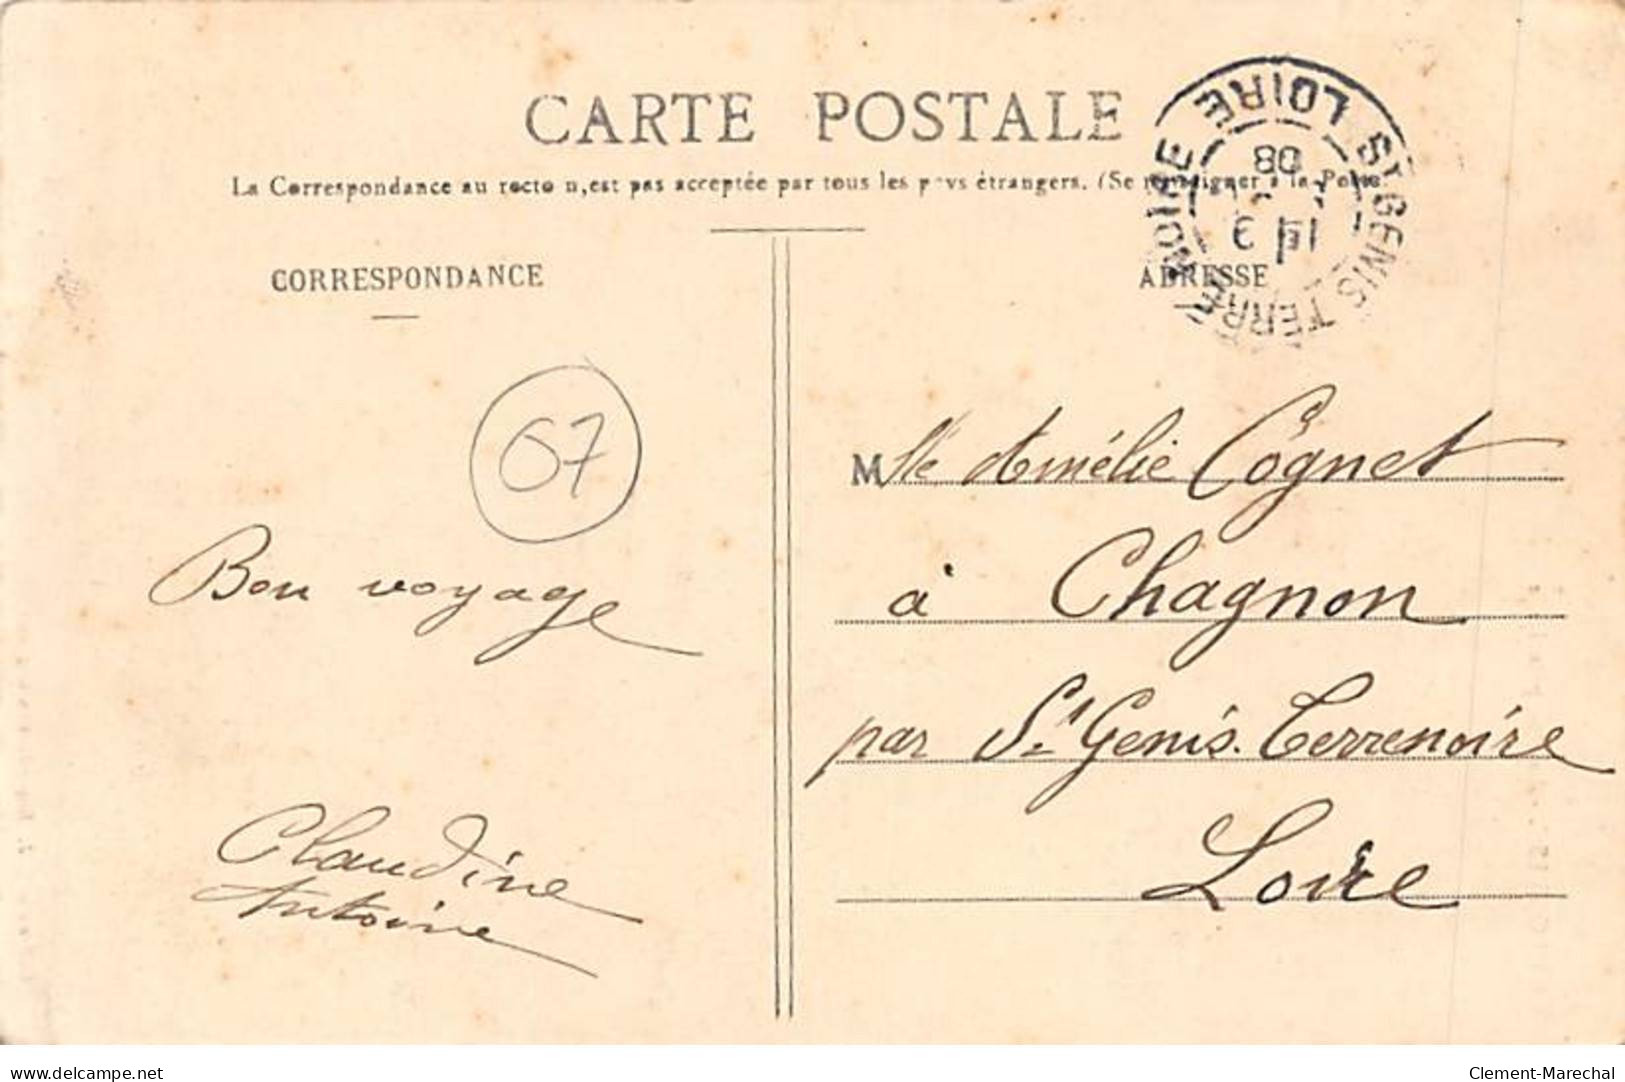 CARTE POSTALE
La Correspondance au recto n'est pas acceptée par tous les pays étrangers. (Se renseigner à la Poste
CORRESPONDANCE
ADRESSE
ST GENIS TERRE NOIRE
LOIRE
08
67
Mlle Amélie Cognet
à Chagnon
par St Genis. Terrenoire
Loire
Bon voyage
Claudine
Antoine
www.delcampe.net
Clement-Marechal